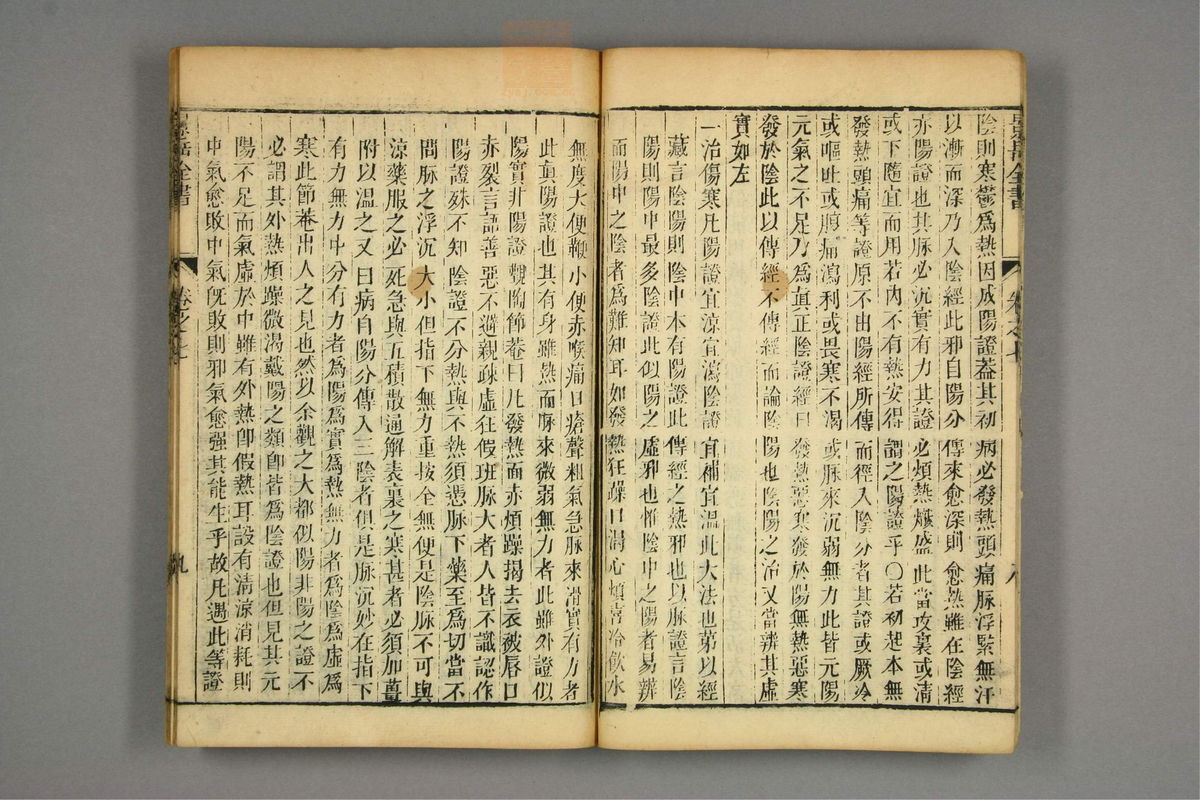 景岳全書
卷之七
八
陰則寒鬱爲熱因成陽證蓋其初病必發熱頭痛脈浮緊無汗
以漸而深乃入陰經此邪自陽分傳來愈深則愈熱雖在陰經
亦陽證也其脈必沉實有力其證必煩熱熾盛此當攻裏或清
或下隨宜而用若內不有熱安得謂之陽證乎〇若初起本無
發熱頭痛等證原不出陽經所傳而徑入陰分者其證或厥冷
或嘔吐或腹痛瀉利或畏寒不渴或脈來沉弱無力此皆元陽
元氣之不足乃爲眞正陰證經曰發熱惡寒發於陽無熱惡寒
發於陰此以傳經不傳經而論陰陽也陰陽之治又當辨其虛
實如左
一治傷寒凡陽證宜涼宜瀉陰證宜補宜溫此大法也第以經
藏言陰陽則陰中本有陽證此傳經之熱邪也以脈證言陰
陽則陽中最多陰證此似陽之虛邪也惟陰中之陽者易辨
而陽中之陰者爲難知耳如發熱狂躁口渴心煩喜冷飲水
無度大便鞭小便赤喉痛口瘡聲粗氣急脈來滑實有力者
此眞陽證也其有身雖熱而脈來微弱無力者此雖外證似
陽實非陽證觀陶節菴曰凡發熱面赤煩躁揭去衣被唇口
赤裂言語善惡不避親疎虛狂假班脈大者人皆不識認作
陽證殊不知陰證不分熱與不熱須憑脈下藥至爲切當不
問脈之浮沉大小但指下無力重按全無便是陰脈不可與
涼藥服之必死急與五積散通解表裏之寒甚者必須加薑
附以溫之又曰病自陽分傳入三陰者俱是脈沉妙在指下
有力無力中分有力者爲陽爲實爲熱無力者爲陰爲虛爲
寒此節菴出人之見也然以余觀之大都似陽非陽之證不
必謂其外熱煩躁微渴戴陽之類即皆爲陰證也但見其元
陽不足而氣虛於中雖有外熱卽假熱耳設有清涼消耗則
中氣愈敗中氣旣敗則邪氣愈强其能生乎故凡遇此等證
景岳全書
卷之七
九